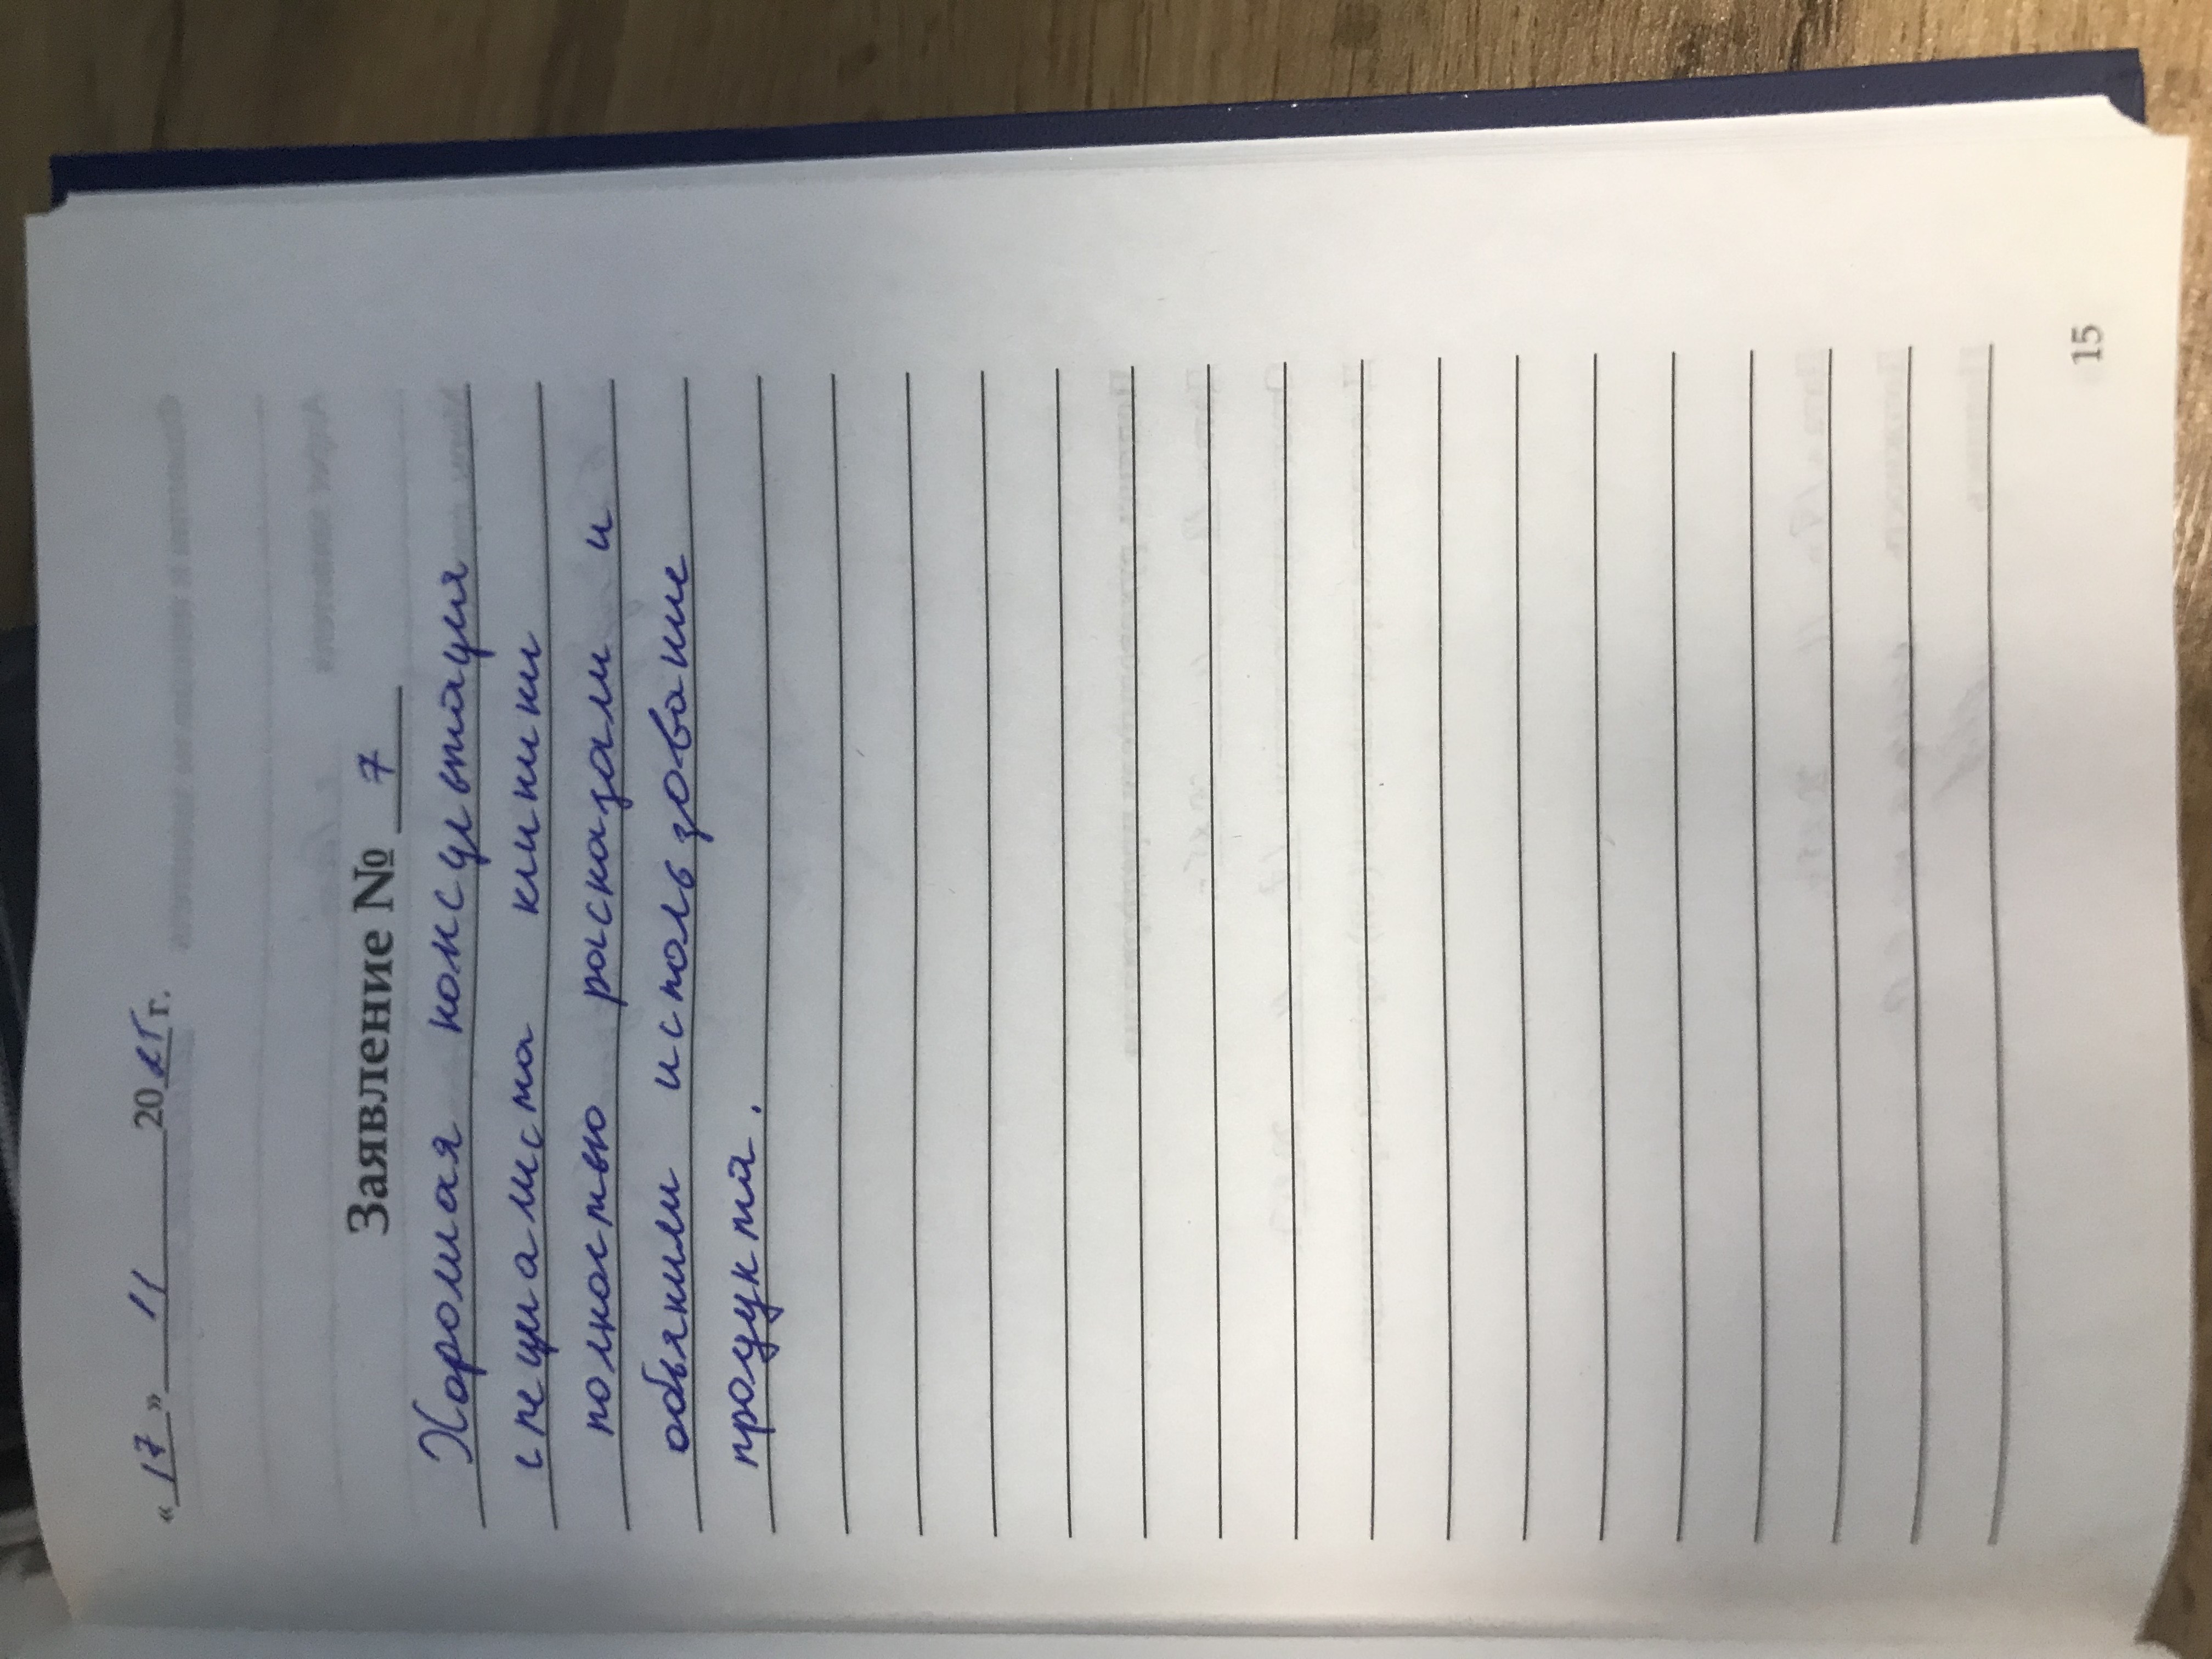 « 17 » 11 2025 г.
Заявление № 7
Хорошая консультация
специалиста клиники
полностью расказали и
обьянили использование
продуктй.
15